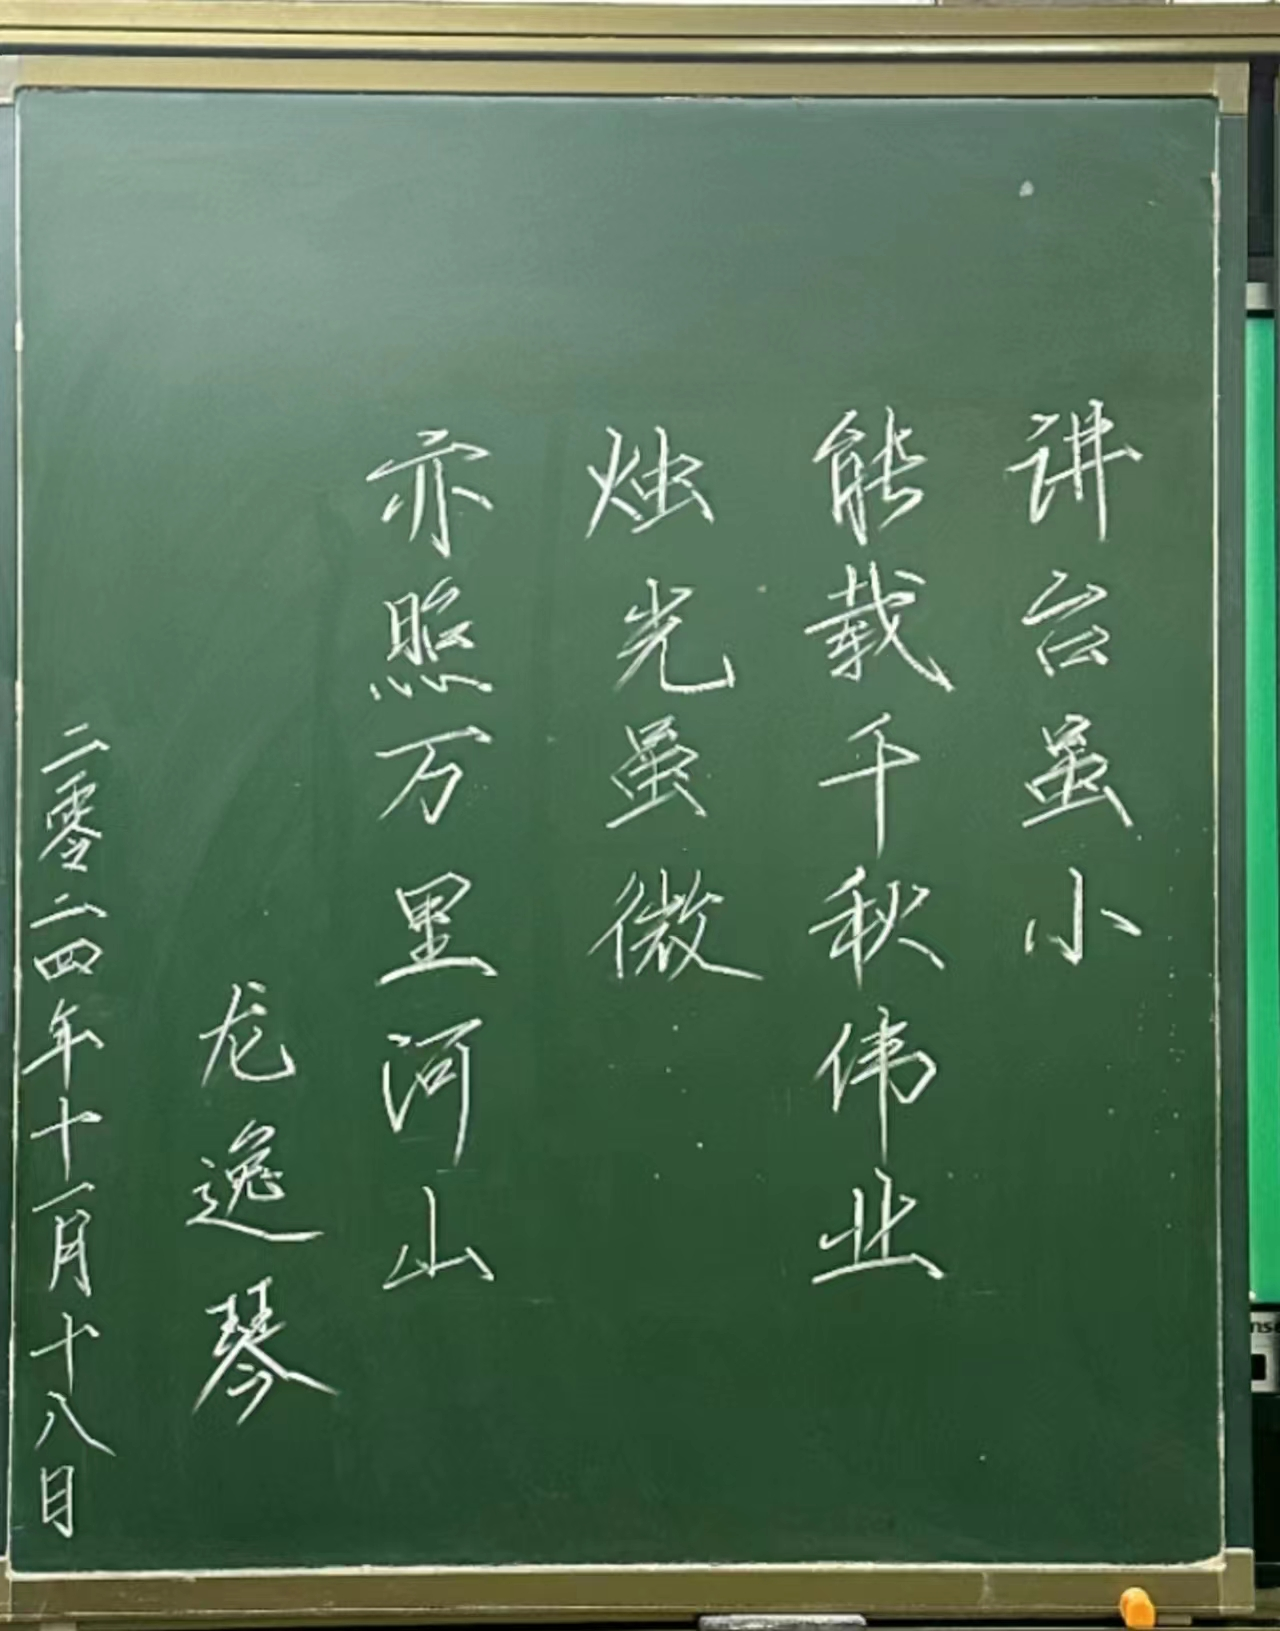 讲台虽小
能载千秋伟业
烛光虽微
亦照万里河山
龙逸琴
二零二四年十一月十八日